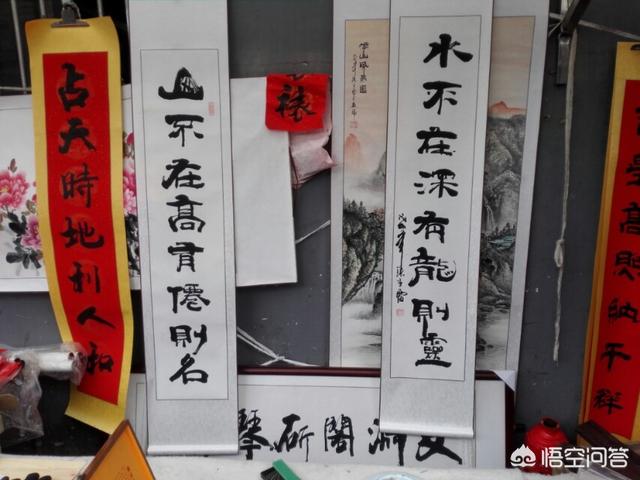 占天時地利人和
山不在高有僊則名
裱
水不在深有龍則靈
星高照納千祥
文淵閣斫琴
悟空问答